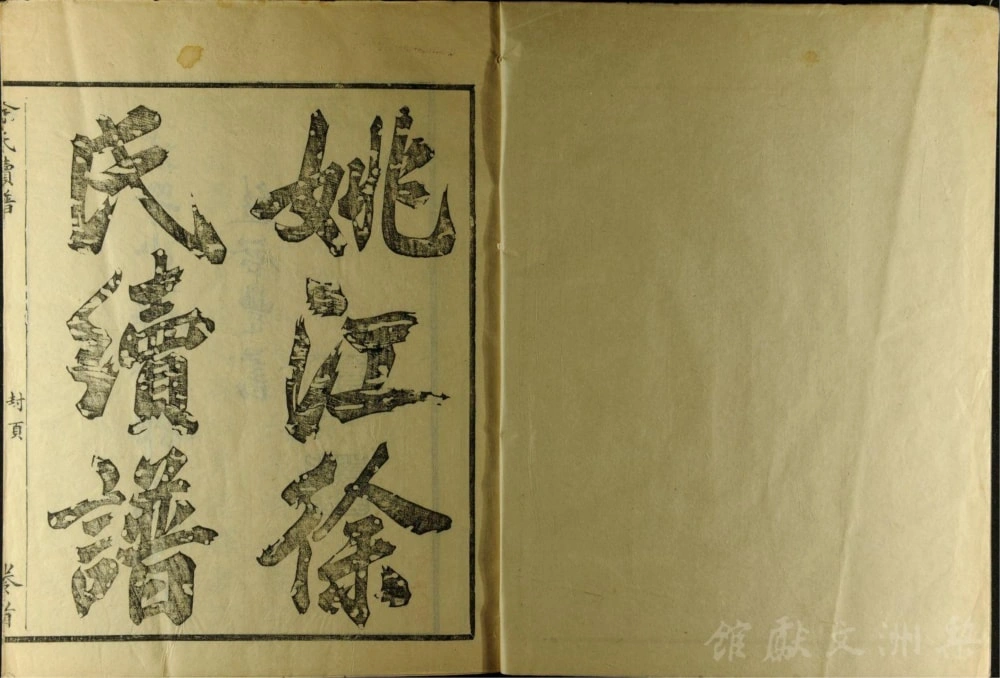 姚江徐
氏續譜
徐氏續譜
封頁
卷首
梨洲文獻館